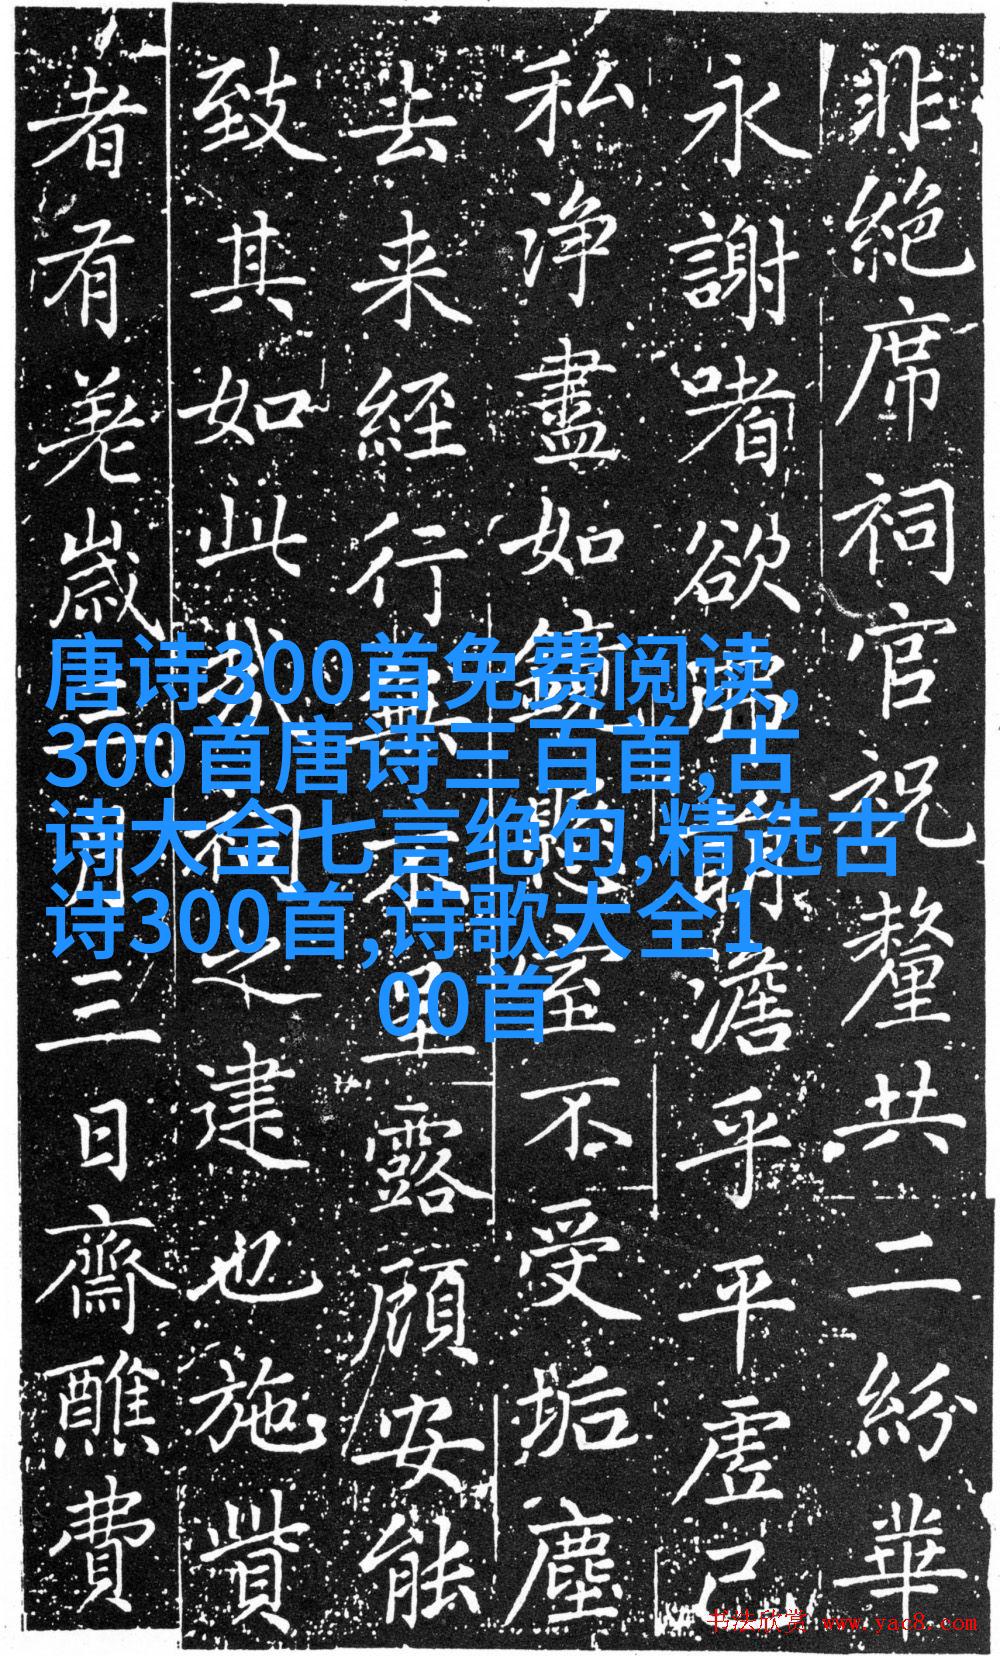 非絕席祠官祝釐共二紛華
永謝嗜欲澹乎平虛己
私淨盡如鏡懸空不受垢塵
去来經行無里露顧安能
致其如此祠之建也施貲
者有羗歲三日齋醮費
唐诗300首免费阅读,
300首唐诗三百首,古
诗大全七言绝句,精选古
诗300首,诗歌大全1
00首
书法欣赏 www.yac8.com